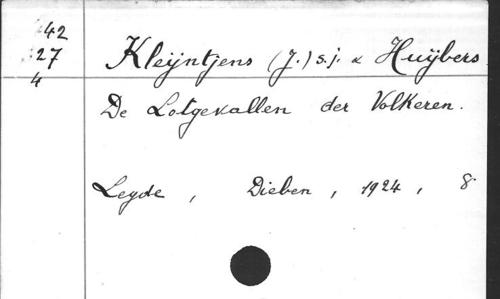 42
27
4
Kleÿntjens (J.) s.j. & Huÿbers
De Lotgevallen der Volkeren.
Leyde, Dieben, 1924, 8°